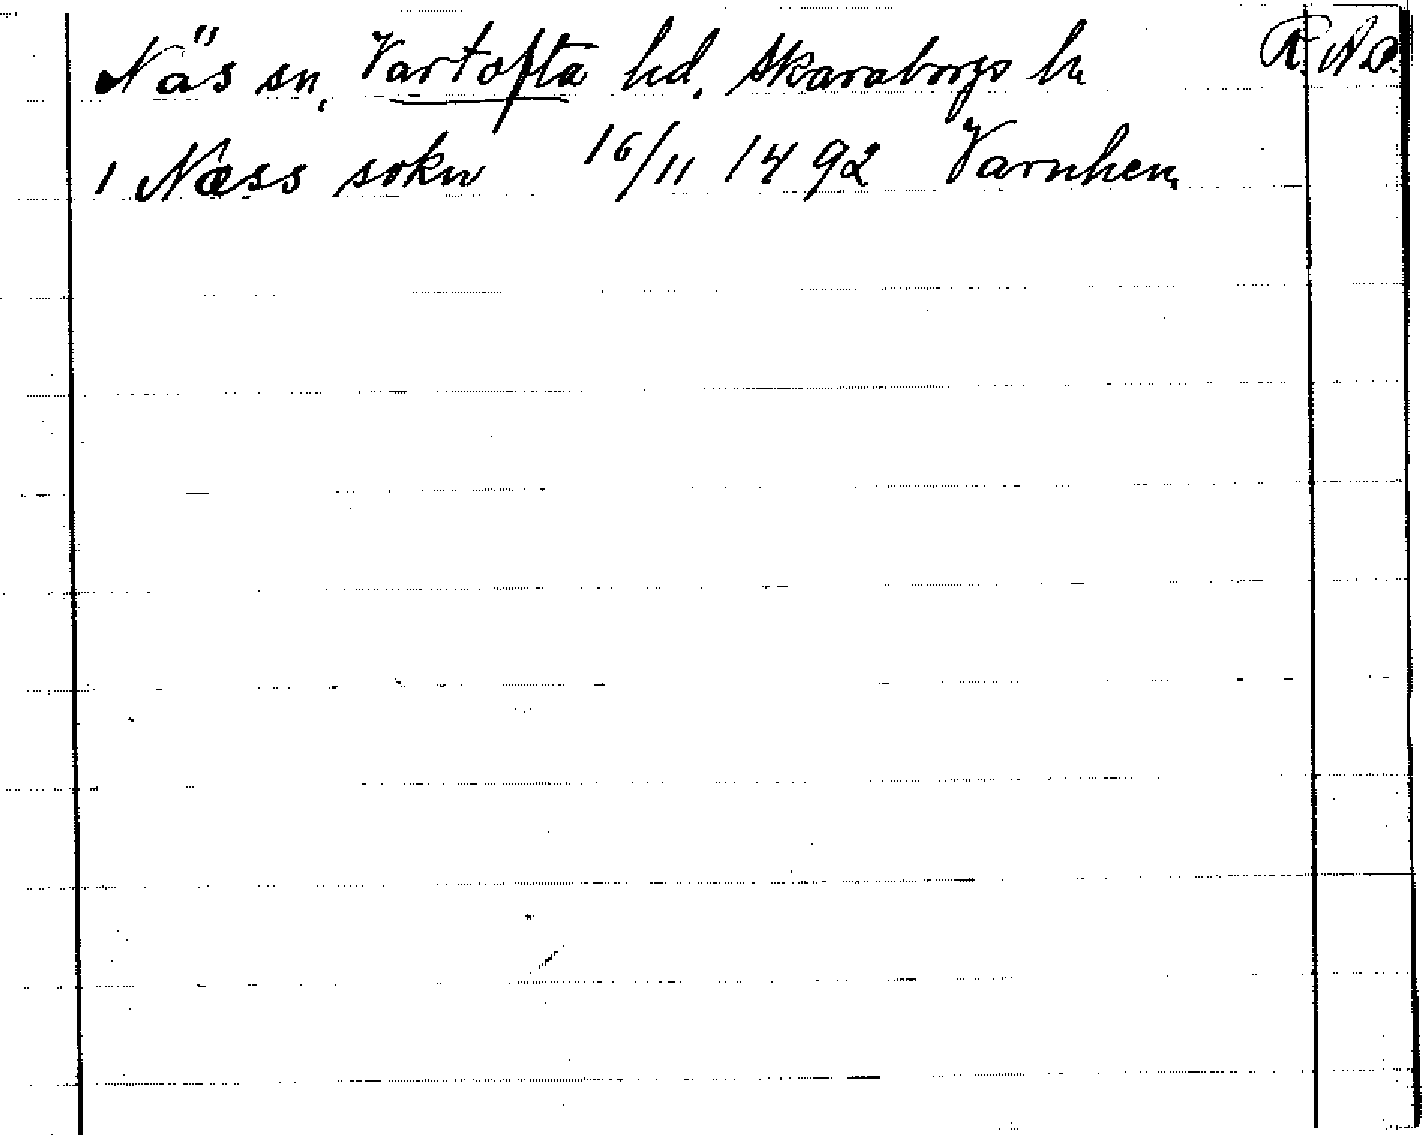 Näs sn, Vartofta hd, Skaraborgs ln R.A.
i Næss sokn 16/11 1492 Varnhem